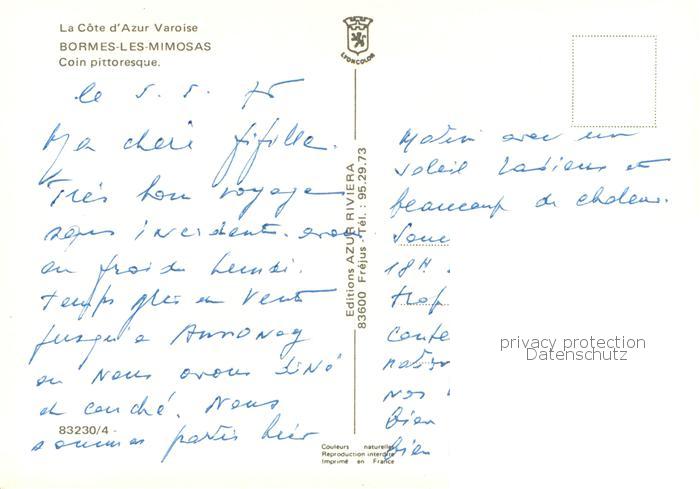 La Côte d'Azur Varoise
BORMES-LES-MIMOSAS
Coin pittoresque.
LYONCOLOR
le 5. 5. 75
Ma chère fifille.
Très bon voyage
sans incident. avons
eu froid Lundi.
Temps gris en Vent
jusqu'a Annonay
ou nous avons diné
et couché. Nous
sommes partis hier
83230/4 -
Editions AZUR RIVIERA
83600 Fréjus - Tél. : 95.29.73
Couleurs naturelles
Reproduction interdite
Imprimé en France
Matin avec un
soleil radieux et
beaucoup de chaleur.
18H.
trop
conte
nos
bien
bien
privacy protection
Datenschutz